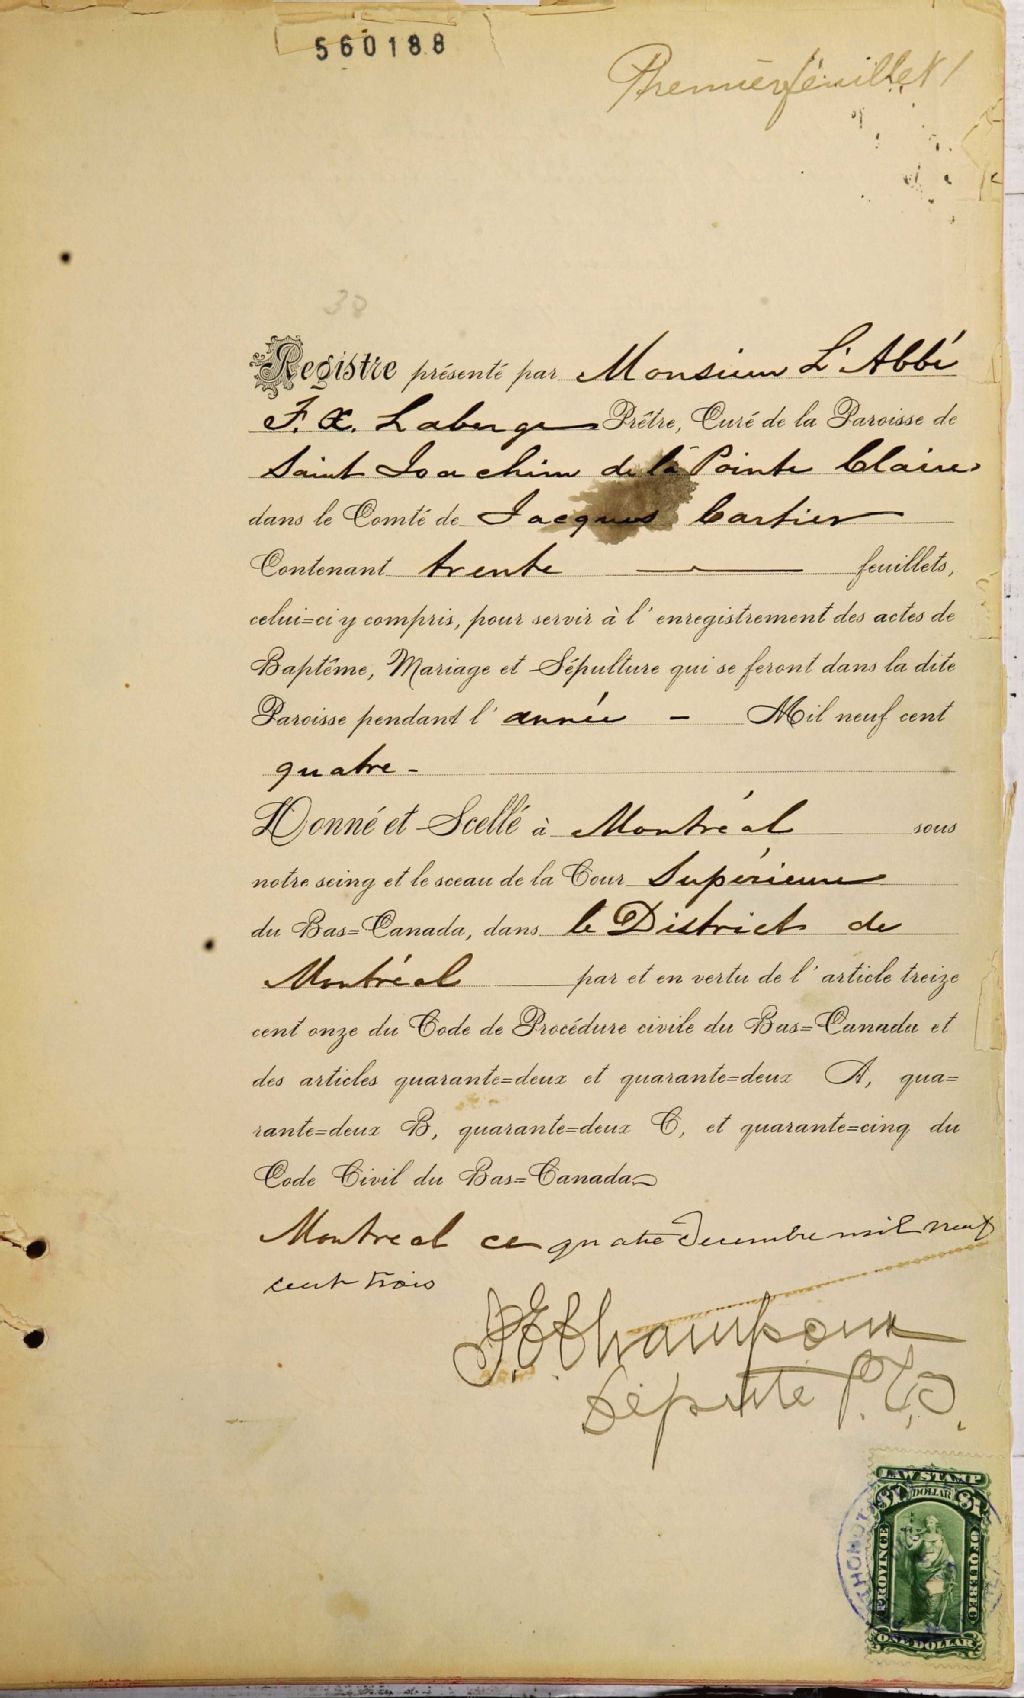 560188
Premier feuillet 1
38
Registre présenté par Monsieur L'Abbé
F. X. Laberge Prêtre, Curé de la Paroisse de
Saint Joachim de la Pointe Claire
dans le Comté de Jacques Cartier
Contenant trente feuillets,
celui=ci y compris, pour servir à l'enregistrement des actes de
Baptême, Mariage et Sépulture qui se feront dans la dite
Paroisse pendant l'année - Mil neuf cent
quatre -
Donné et Scellé à Montréal sous
notre seing et le sceau de la Cour Supérieure
du Bas=Canada, dans le District de
Montréal par et en vertu de l'article treize
cent onze du Code de Procédure civile du Bas=Canada et
des articles quarante=deux et quarante=deux A, qua=
rante=deux B, quarante=deux C, et quarante=cinq du
Code Civil du Bas=Canada
Montreal ce quatre Decembre mil neuf
cent trois
Député P.
LAW STAMP
DOLLAR
PROVINCE OF QUEBEC
ONE DOLLAR